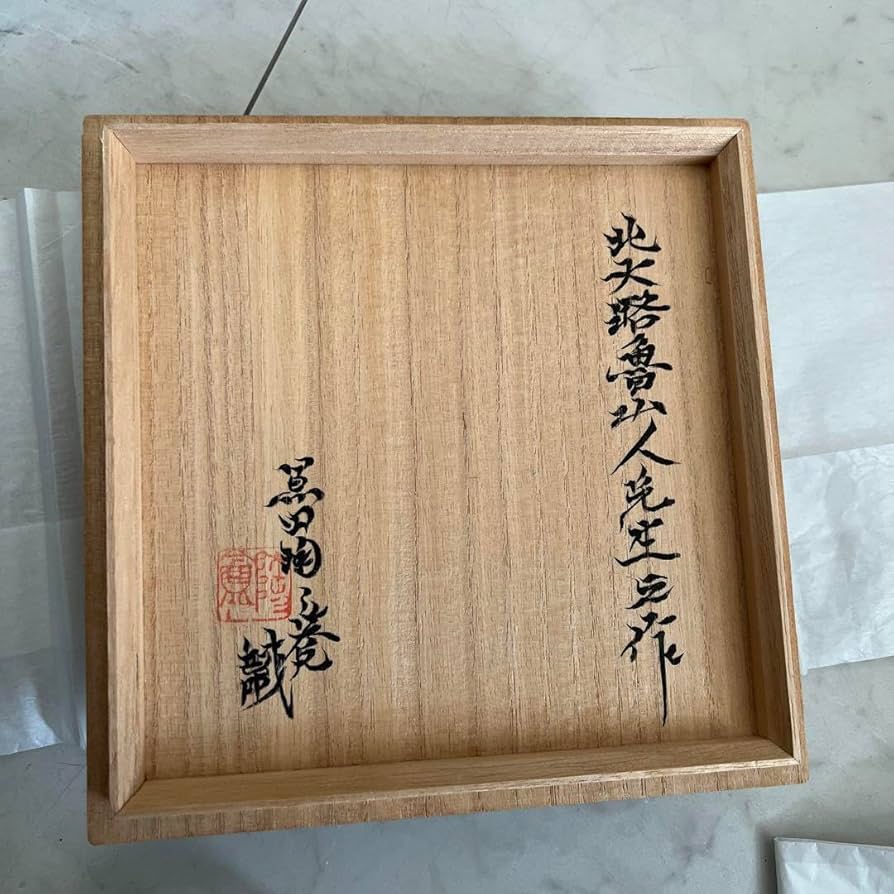 北大路魯山人先生之作
黒田陶々庵
識